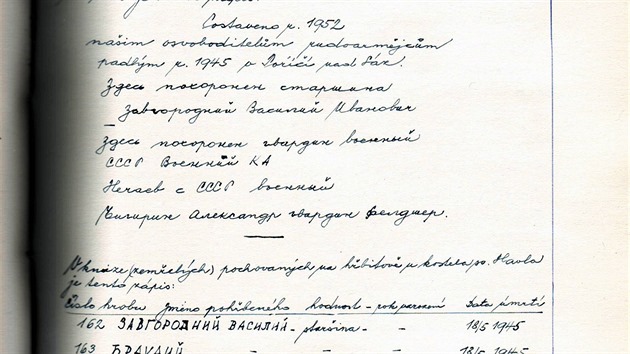 Postaveno r. 1952
našim osvoboditelům rudoarmějcům
padlým r. 1945 v Poříčí nad Sáz.
Здесь похоронен старшина
Завгородний Василий Иванович
Здесь похоронен гвардии военный
СССР Военний КА
Нечаев с СССР военный
Чигирин Александр гвардии фелдшер.
V knize (zemřelých) pochovaných na hřbitově u kostela sv. Havla
je tento zápis:
číslo hrobu jméno pohřbeného hodnost - rok narození Data úmrtí
162 ЗАВГОРОДНИЙ ВАСИЛИЙ - staršina - - 18/5 1945
163 - - - 18/5 1945